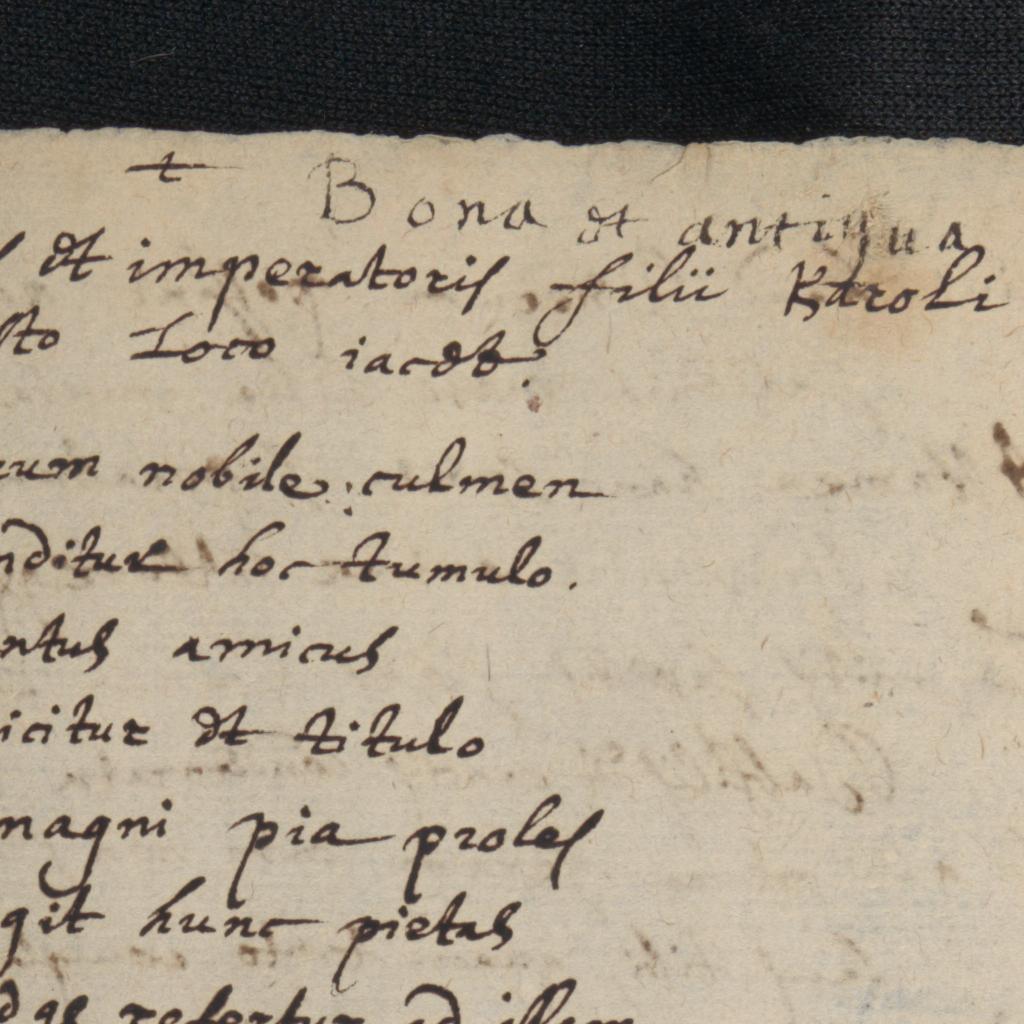 t Bona et antiqua
et imperatoris filii Karoli
sto Loco iacet.
rum nobile culmen
nditur hoc tumulo.
ntus amicus
icitur et titulo
magni pia proles
git hunc pietas
refertur ad illam